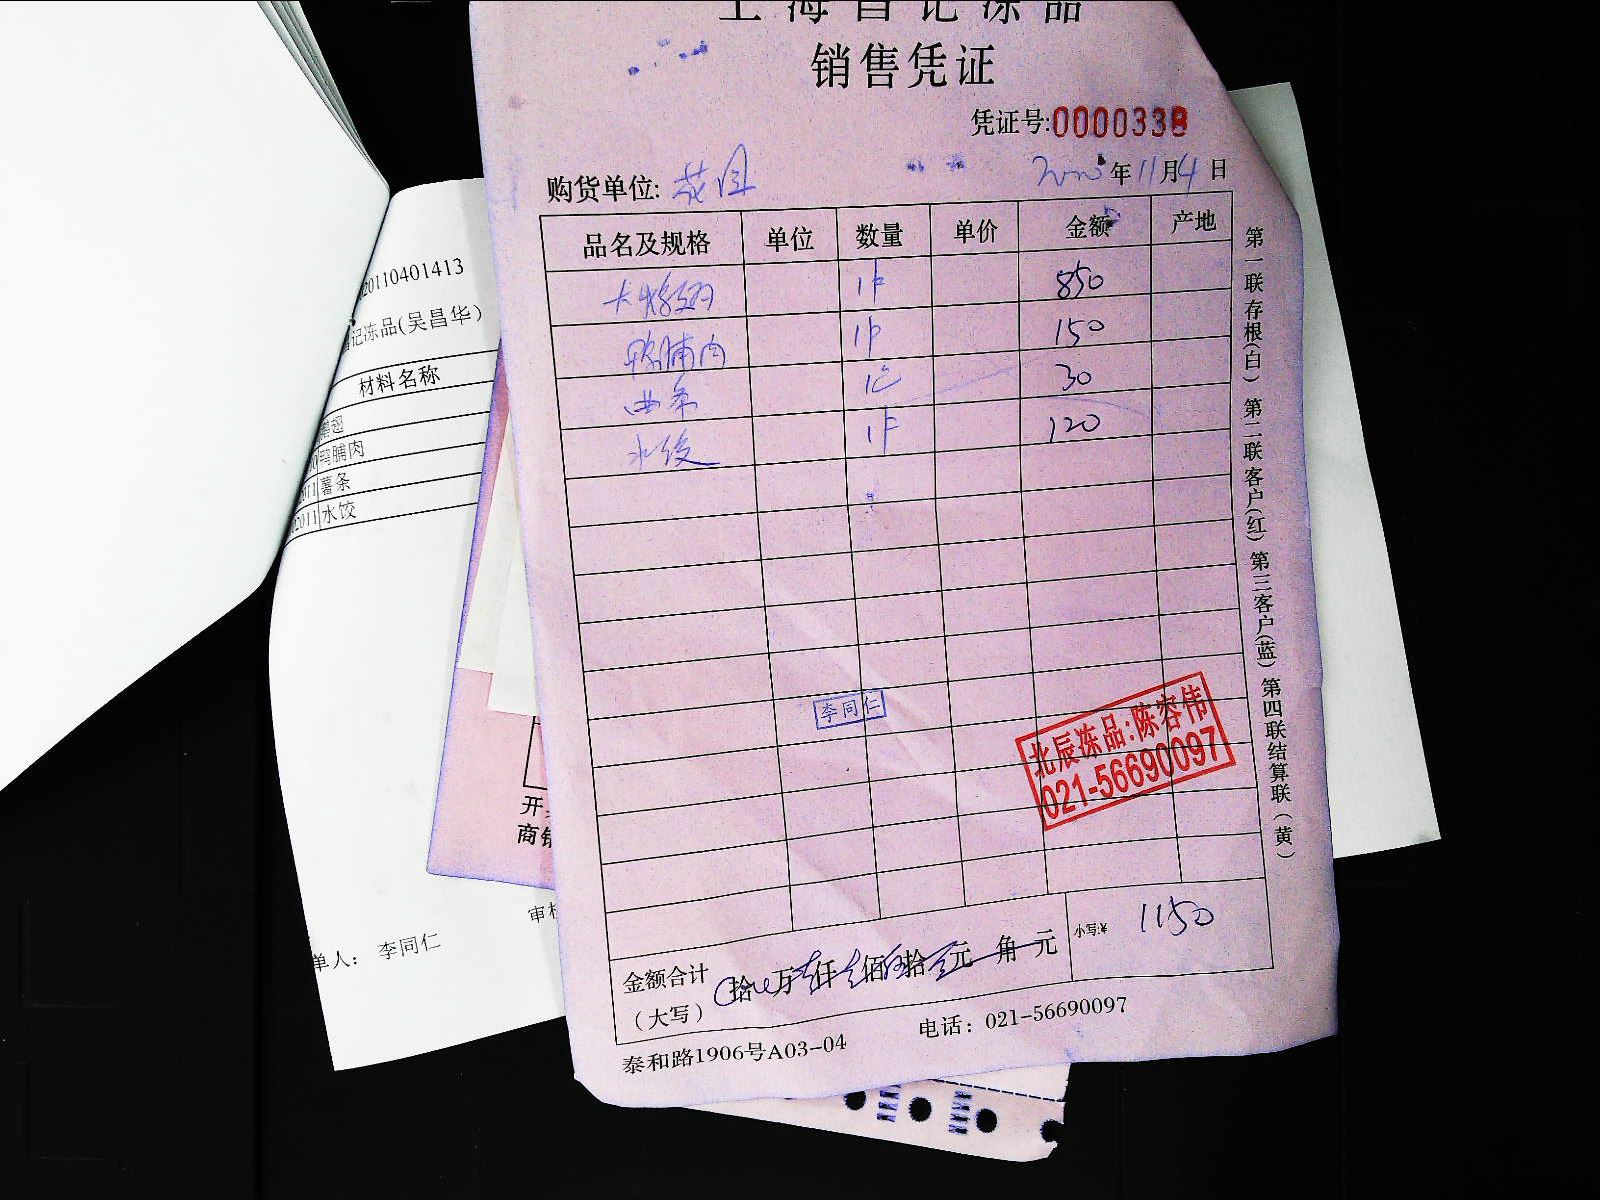 上海昌记冻品
销售凭证
凭证号:0000338
购货单位: 花园 年11月4日
品名及规格 单位 数量 单价 金额 产地
1件 850
鸭脯肉 1件 150
1包 30
水饺 1件 120
李同仁
北辰冻品:陈容伟
021-56690097
金额合计
(大写)
拾 万 仟 佰 拾 元 角 元
小写:¥ 1150
泰和路1906号A03-04 电话: 021-56690097
第一联存根(白) 第二联客户(红) 第三客户(蓝) 第四联结算联(黄)
20110401413
记冻品(吴昌华)
材料名称
翅
鸭脯肉
薯条
2011 水饺
单人: 李同仁
审核
开
商销